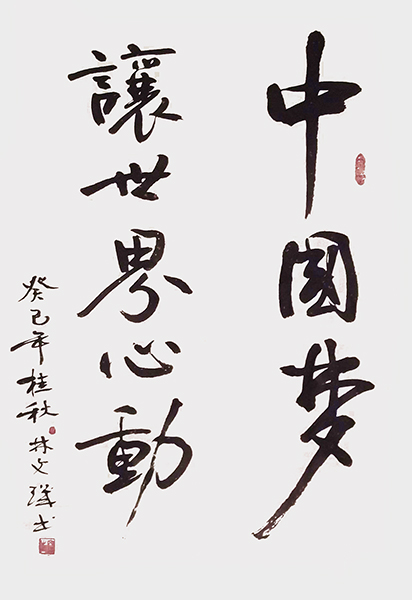 中國梦
讓世界心動
癸巳年桂秋 林文书